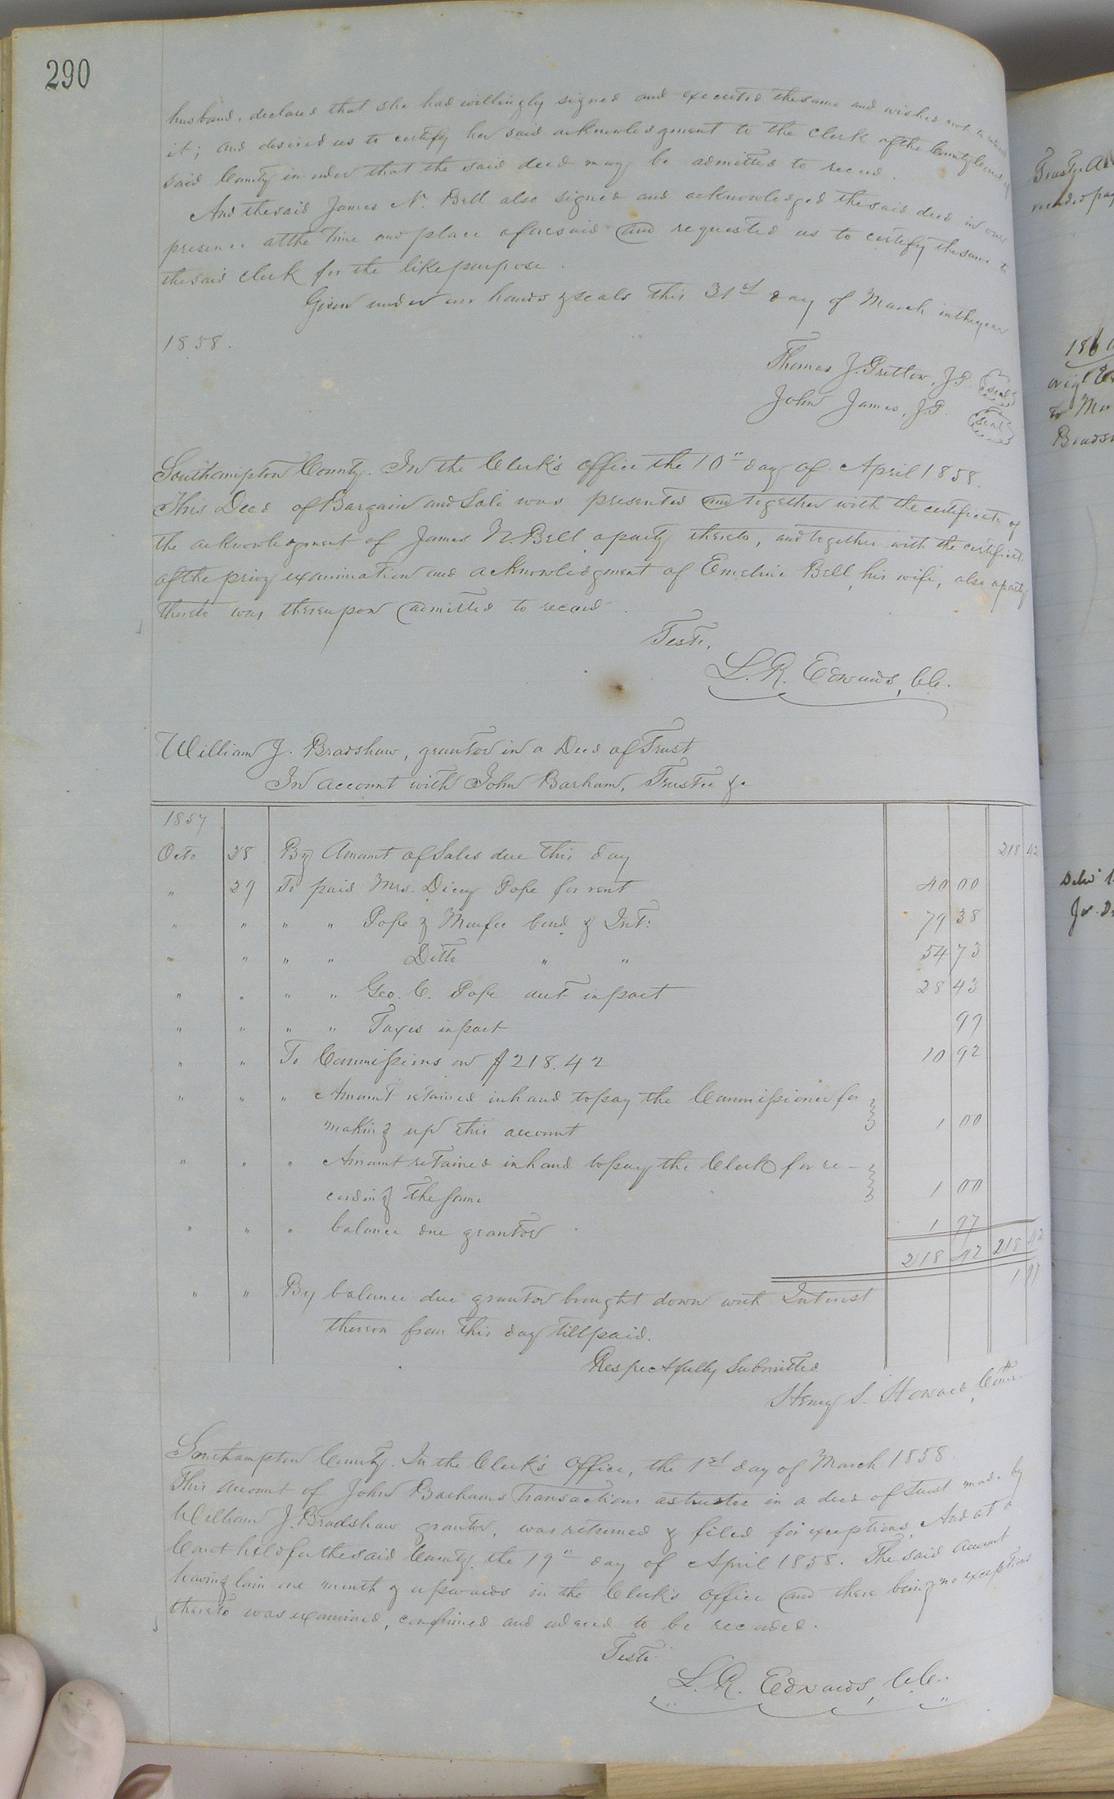 290
husband, declared that she had willingly signed and executed the same and wishes not to retract
it; and desired us to certify her said acknowledgment to the Clerk of the County Court of
said County in order that the said deed may be admitted to record.
And the said James N. Bell also signed and acknowledged the said deed in our
presence at the time and place aforesaid and requested us to certify the same to
the said clerk for the like purpose.
Given under our hands & seals this 31st day of March in the year
1858.
Thomas J. Pretlow, J.P. seal
John James, J.P. seal
Southampton County. In the Clerk's office the 10" day of April 1858.
This Deed of Bargain and Sale was presented and together with the certificate of
the acknowledgment of James N. Bell a party thereto, and together with the certificate
of the privy examination and acknowledgment of Emeline Bell, his wife, also a party
thereto was thereupon admitted to record.
Teste,
L. R. Edwards, C.C.
William J. Bradshaw, grantor in a Deed of Trust
In account with John Barham, Trustee &c
1857
Octo 28 By Amount of Sales due this day 218 42
" 29 To paid Mrs. Dicey Pope for rent 40 00
" " " " Pope & Murfee bond & Int: 79 38
" " " " Ditto " " 54 73
" " " " Geo. C. Pope acct in part 28 43
" " " " Taxes in part 99
" " To Commissions on $218.42 10 92
" " " Amount retained in hand to pay the Commissioner for
making up this account 1 00
" " " Amount retained in hand to pay the Clerk for re-
cording the same 1 00
" " " balance due grantor 1 97
218 42 218 42
" " By balance due grantor brought down with Interest 1 97
thereon from this day till paid.
Respectfully Submitted
Henry S. Howard, Comr
Southampton County. In the Clerk's Office, the 1st day of March 1858.
This account of John Barham's transactions as trustee in a deed of trust made by
William J. Bradshaw grantor, was returned & filed for exceptions. And at a
Court held for the said County, the 19" day of April 1858. The said account
having lain one month & upwards in the Clerk's Office and there being no exceptions
thereto was examined, confirmed and ordered to be recorded.
Teste
L. R. Edwards, C.C.